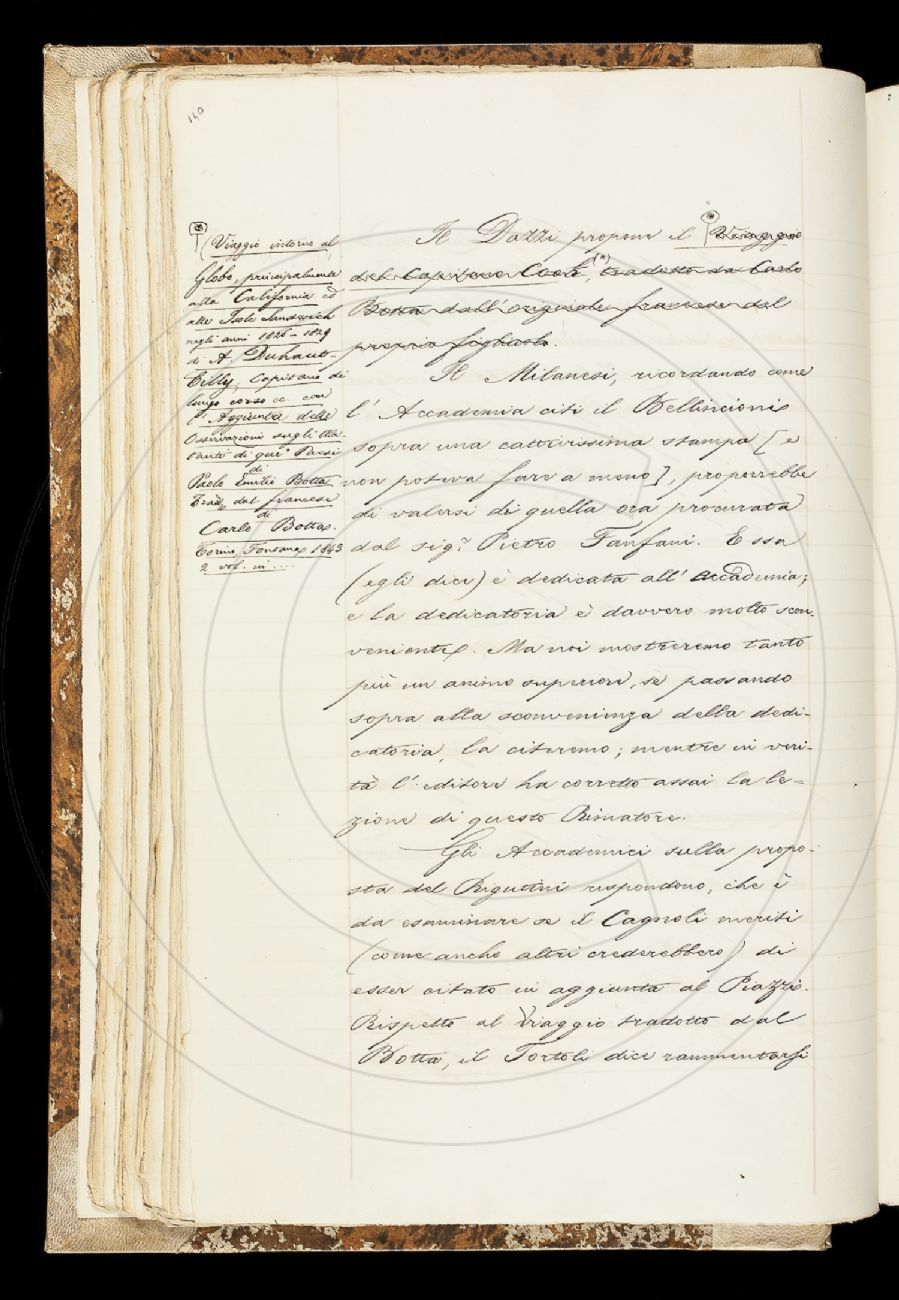 140
(Viaggio intorno al
Globo, principalmente
alla California ed
alle Isole Sandwich
negli anni 1826-1829
di A. Duhaut-
Cilly, Capitano di
lungo corso ec. con
l'Aggiunta delle
Osservazioni sugli abi-
tanti di que' Paesi
di
Paolo Emilio Botta
Trad. dal francese
di
Carlo Botta.
Torino, Fontana, 1843
2 vol. in ....
Il Dazzi propone il Viaggio
del Capitano Cook, tradotto da Carlo
Botta dall'originale francese del
proprio figliuolo.
Il Milanesi, ricordando come
l'Accademia citi il Bellincioni
sopra una cattivissima stampa [e
non poteva fare a meno], proporrebbe
di valersi di quella ora procurata
dal sig.r Pietro Fanfani. Essa
(egli dice) è dedicata all'Accademia;
e la dedicatoria è davvero molto scon-
veniente. Ma noi mostreremo tanto
più un animo superiore, se passando
sopra alla sconvenienza della dedi-
catoria, la citeremo; mentre in veri-
tà l'editore ha corretto assai la le-
zione di questo Rimatore.
Gli Accademici sulla propo-
sta del Rigutini rispondono, che è
da esaminare se il Cagnoli meriti
(come anche altri crederebbero) di
esser citato in aggiunta al Piazzi.
Rispetto al Viaggio tradotto dal
Botta, il Tortoli dice rammentarsi